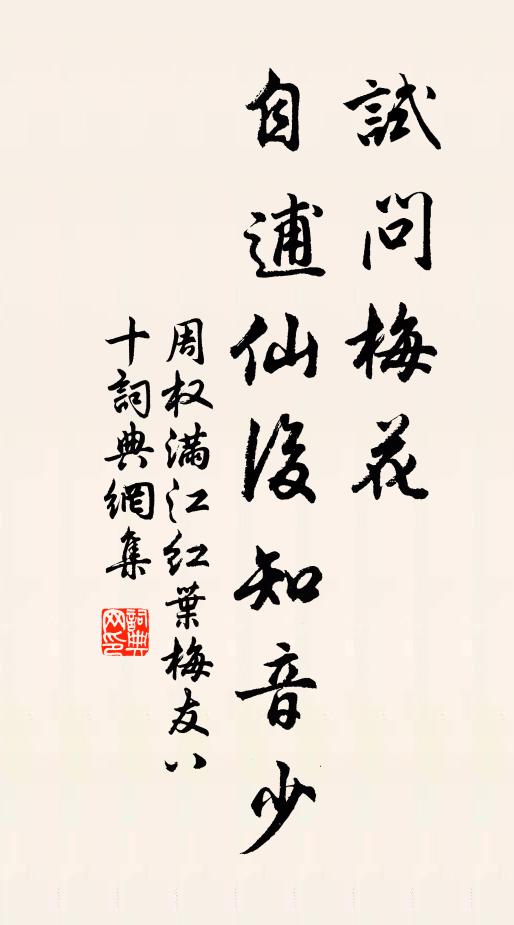 試問梅花
自逋仙後知音少
周权满江红葉梅友八
十詞典網集
詞典
网印